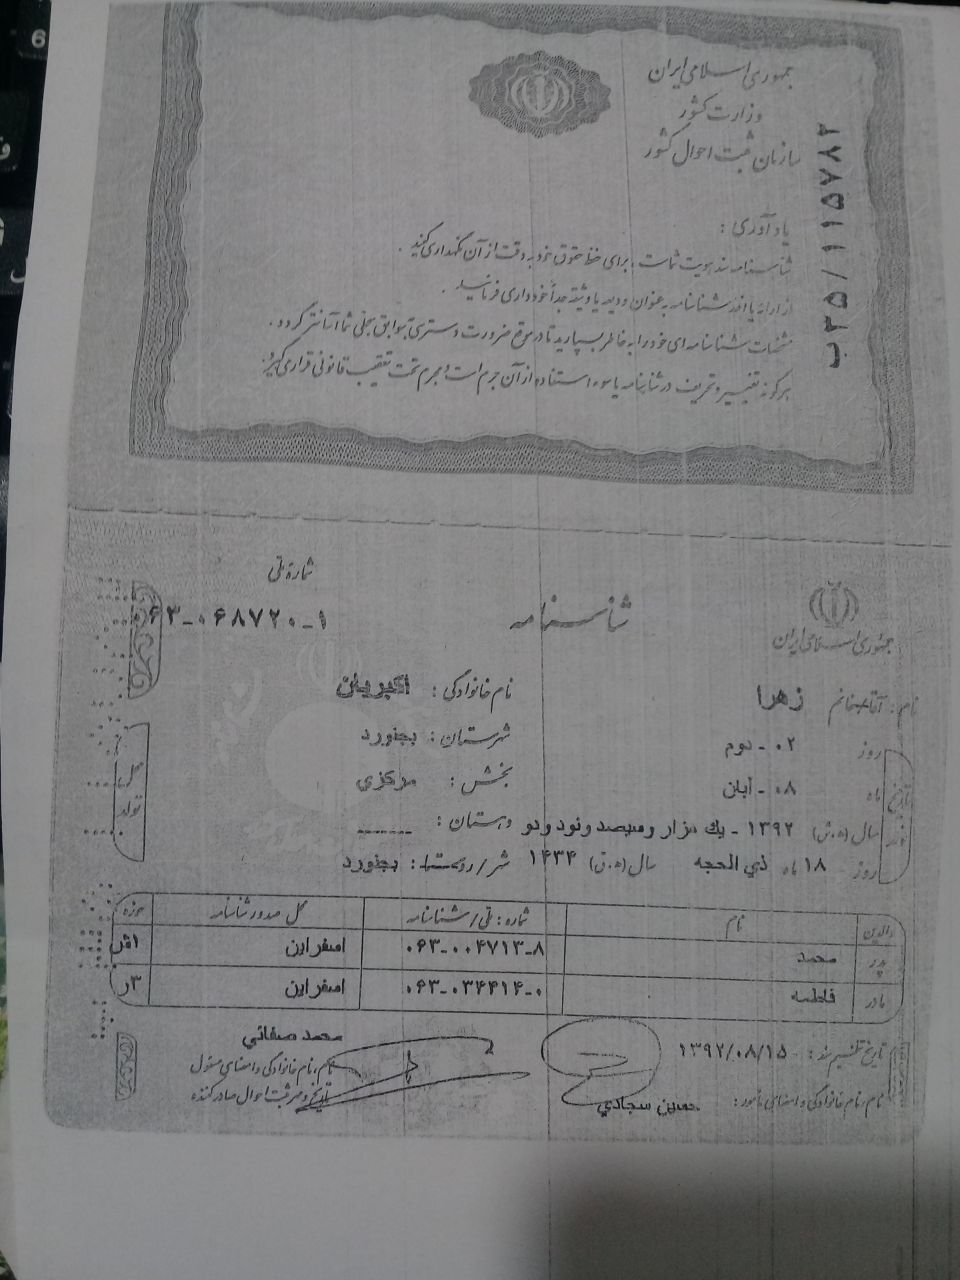 جمهوری اسلامی ایران
وزارت کشور
سازمان ثبت احوال کشور
ب۲۵/۱۱۵۷۸۸
یادآوری :
شناسنامه سند هویت شماست، برای حفظ حقوق خود به دقت از آن نگهداری کنید .
از ارائه یا اخذ شناسنامه به عنوان ودیعه یا وثیقه جداً خودداری فرمائید .
مشخصات شناسنامه‌ای خود را به خاطر بسپارید تا در مواقع ضرورت دسترسی به سوابق سجلی شما آسانتر گردد .
هرگونه تغییر و تحریف در شناسنامه یا سوء استفاده از آن جرم است و مجرم تحت تعقیب قانونی قرار می‌گیرد.
جمهوری اسلامی ایران
شناسنامه
شماره ملی
۰۶۳-۰۶۸۷۲۰-۱
نام : آقا/خانم زهرا نام خانوادگی : اکبریان
تاریخ تولد
روز ۰۲ - دوم شهرستان : بجنورد
ماه ۰۸ - آبان بخش : مرکزی
سال (ه.ش) ۱۳۹۲ - یك هزار و سیصد و نود و دو دهستان : -------
روز ۱۸ ماه ذي الحجه سال (ه.ق) ۱۴۳۴ شهر/روستا : بجنورد
محل تولد
والدین نام شماره : ملی/شناسنامه محل صدور شناسنامه حوزه
پدر محمد ۰۶۳-۰۰۴۷۱۳-۸ اسفراین ۱ش
مادر فاطمه ۰۶۳-۰۳۴۴۱۴-۰ اسفراین ۳ر
تاریخ تنظیم سند : ۱۳۹۲/۰۸/۱۵
نام، نام خانوادگی و امضای مأمور : حسین سجادي
محمد صفائي
نام، نام خانوادگی و امضای مسئول
تاریخ و مهر ثبت احوال صادر کننده